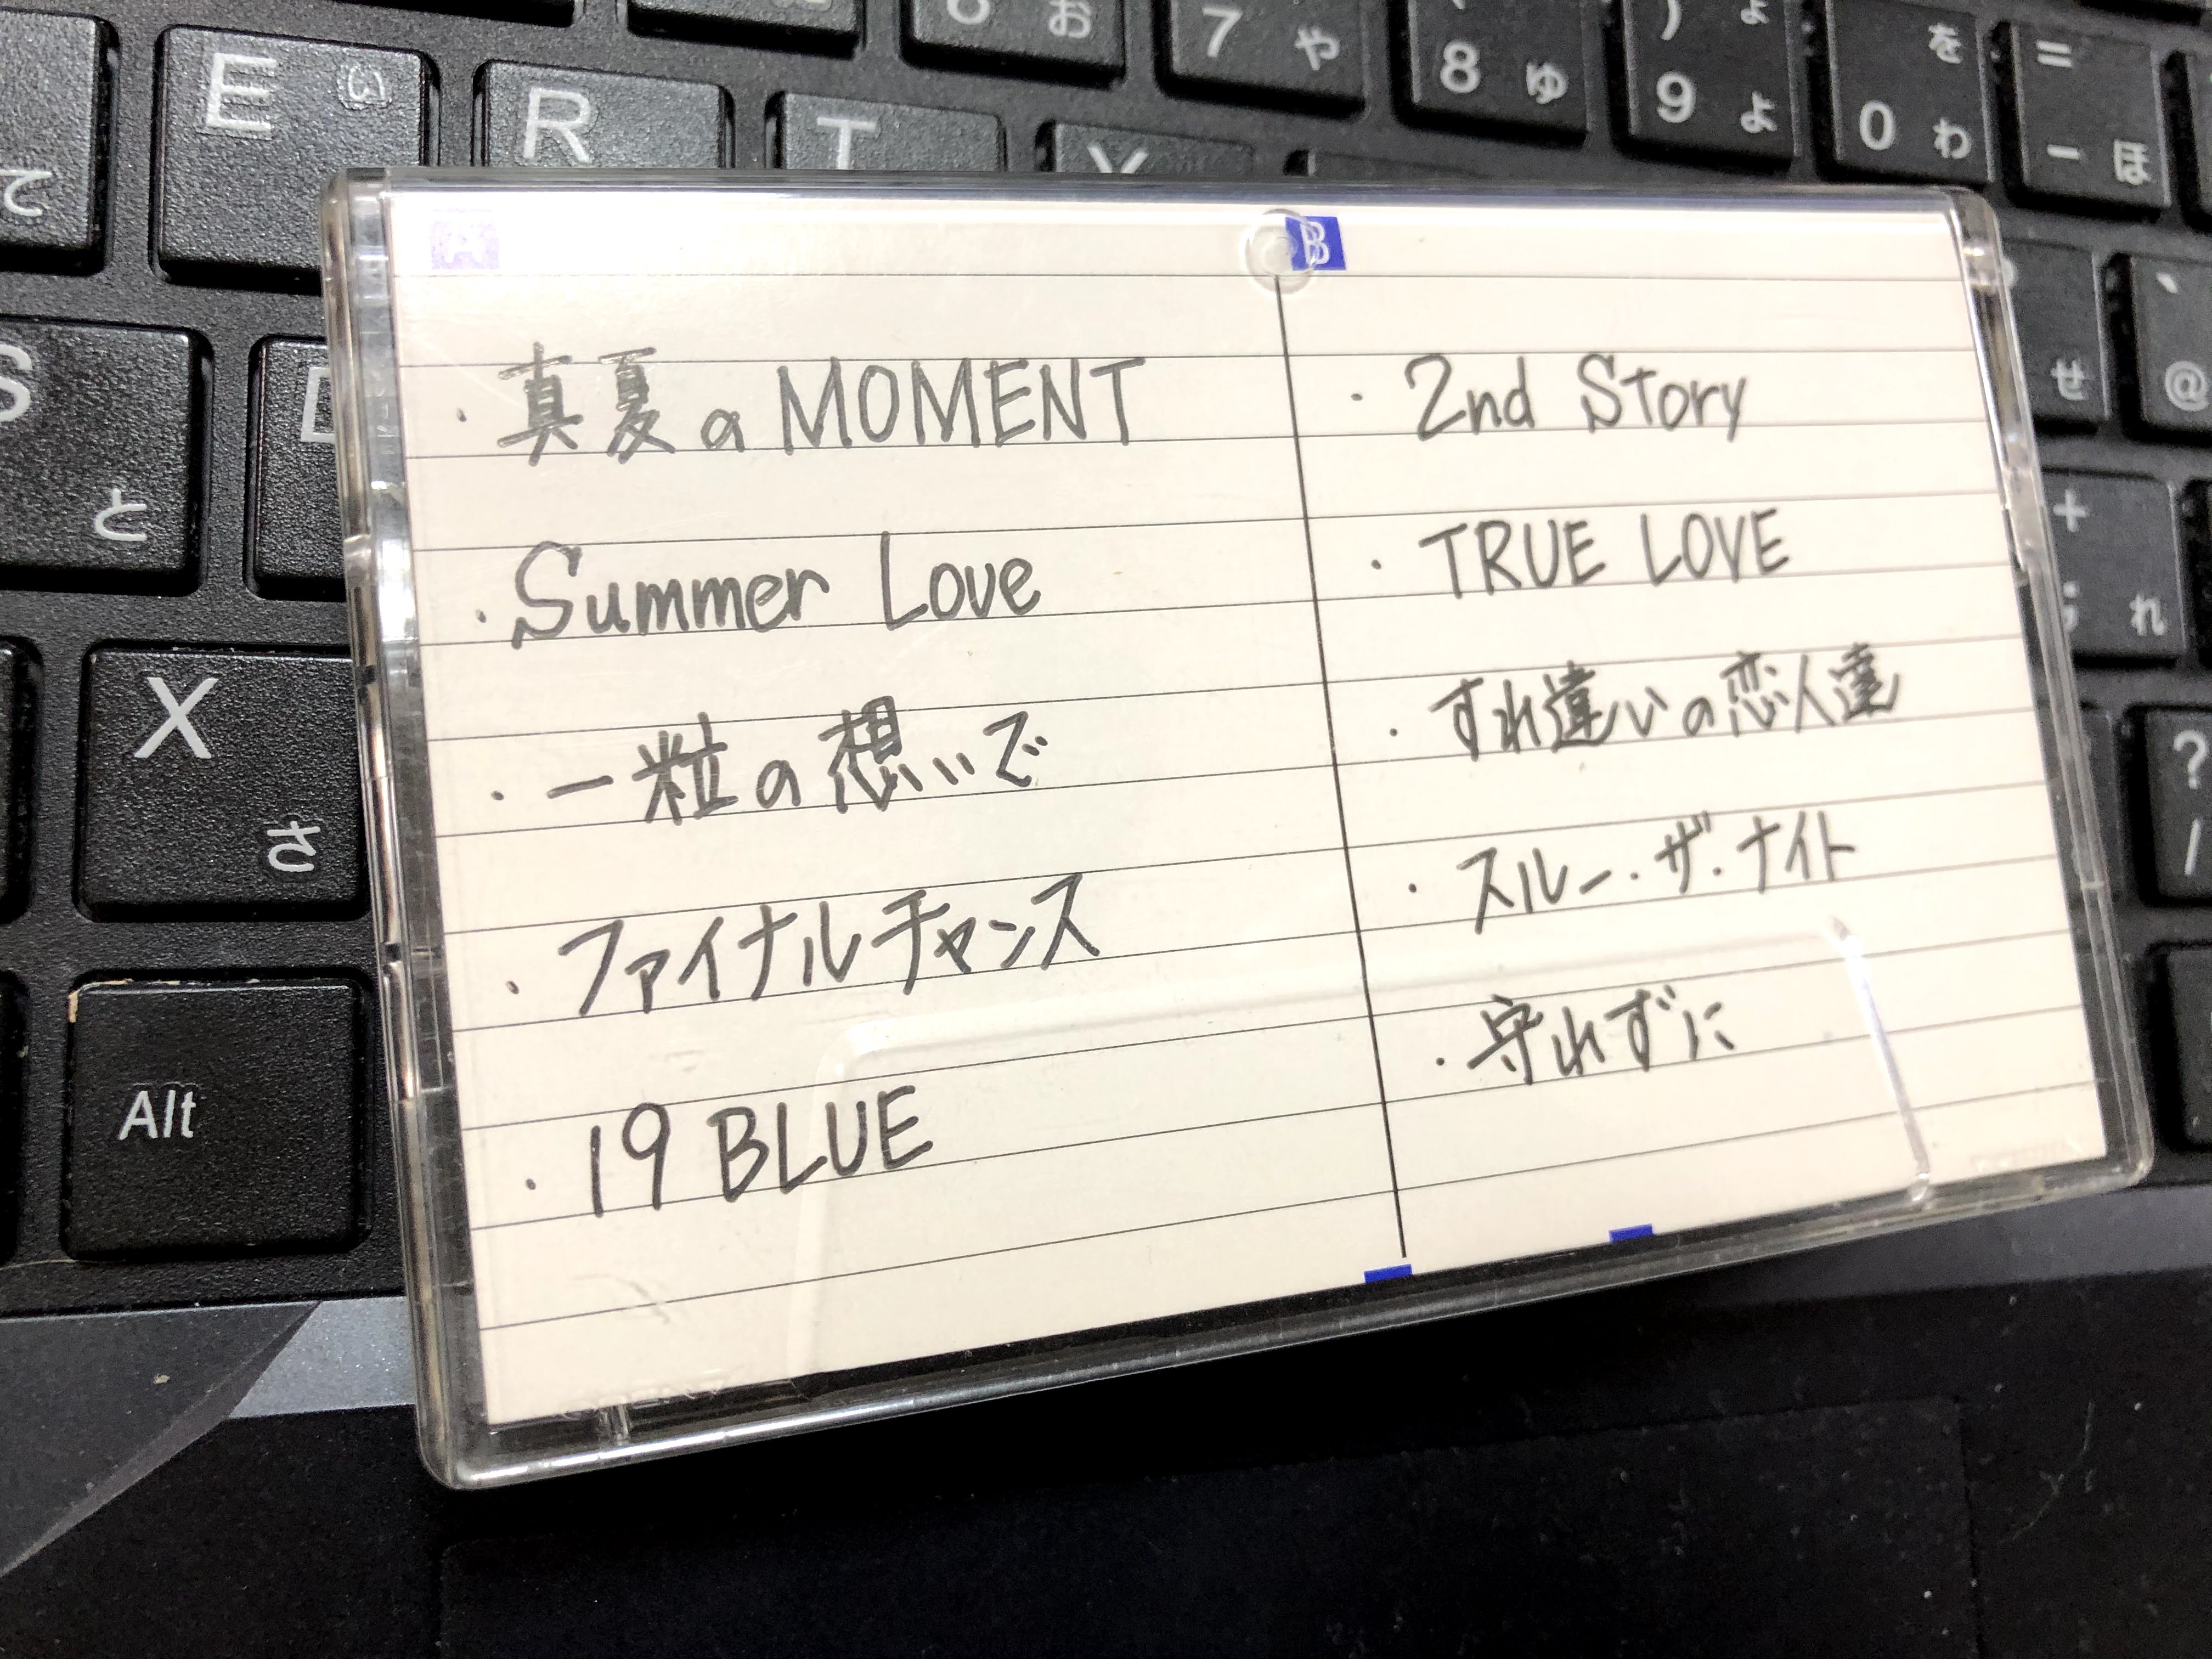 E い
R
T
Y
6 お
7 や
8 ゆ
) よ
9 よ
を
0 わ
=
- ほ
て
S
と
X
さ
Alt
せ
@
+
れ
?
/
A
・真夏のMOMENT
・Summer Love
・一粒の想いで
・ファイナルチャンス
・19 BLUE
B
・2nd Story
・TRUE LOVE
・すれ違いの恋人達
・スルー・ザ・ナイト
・守れずに